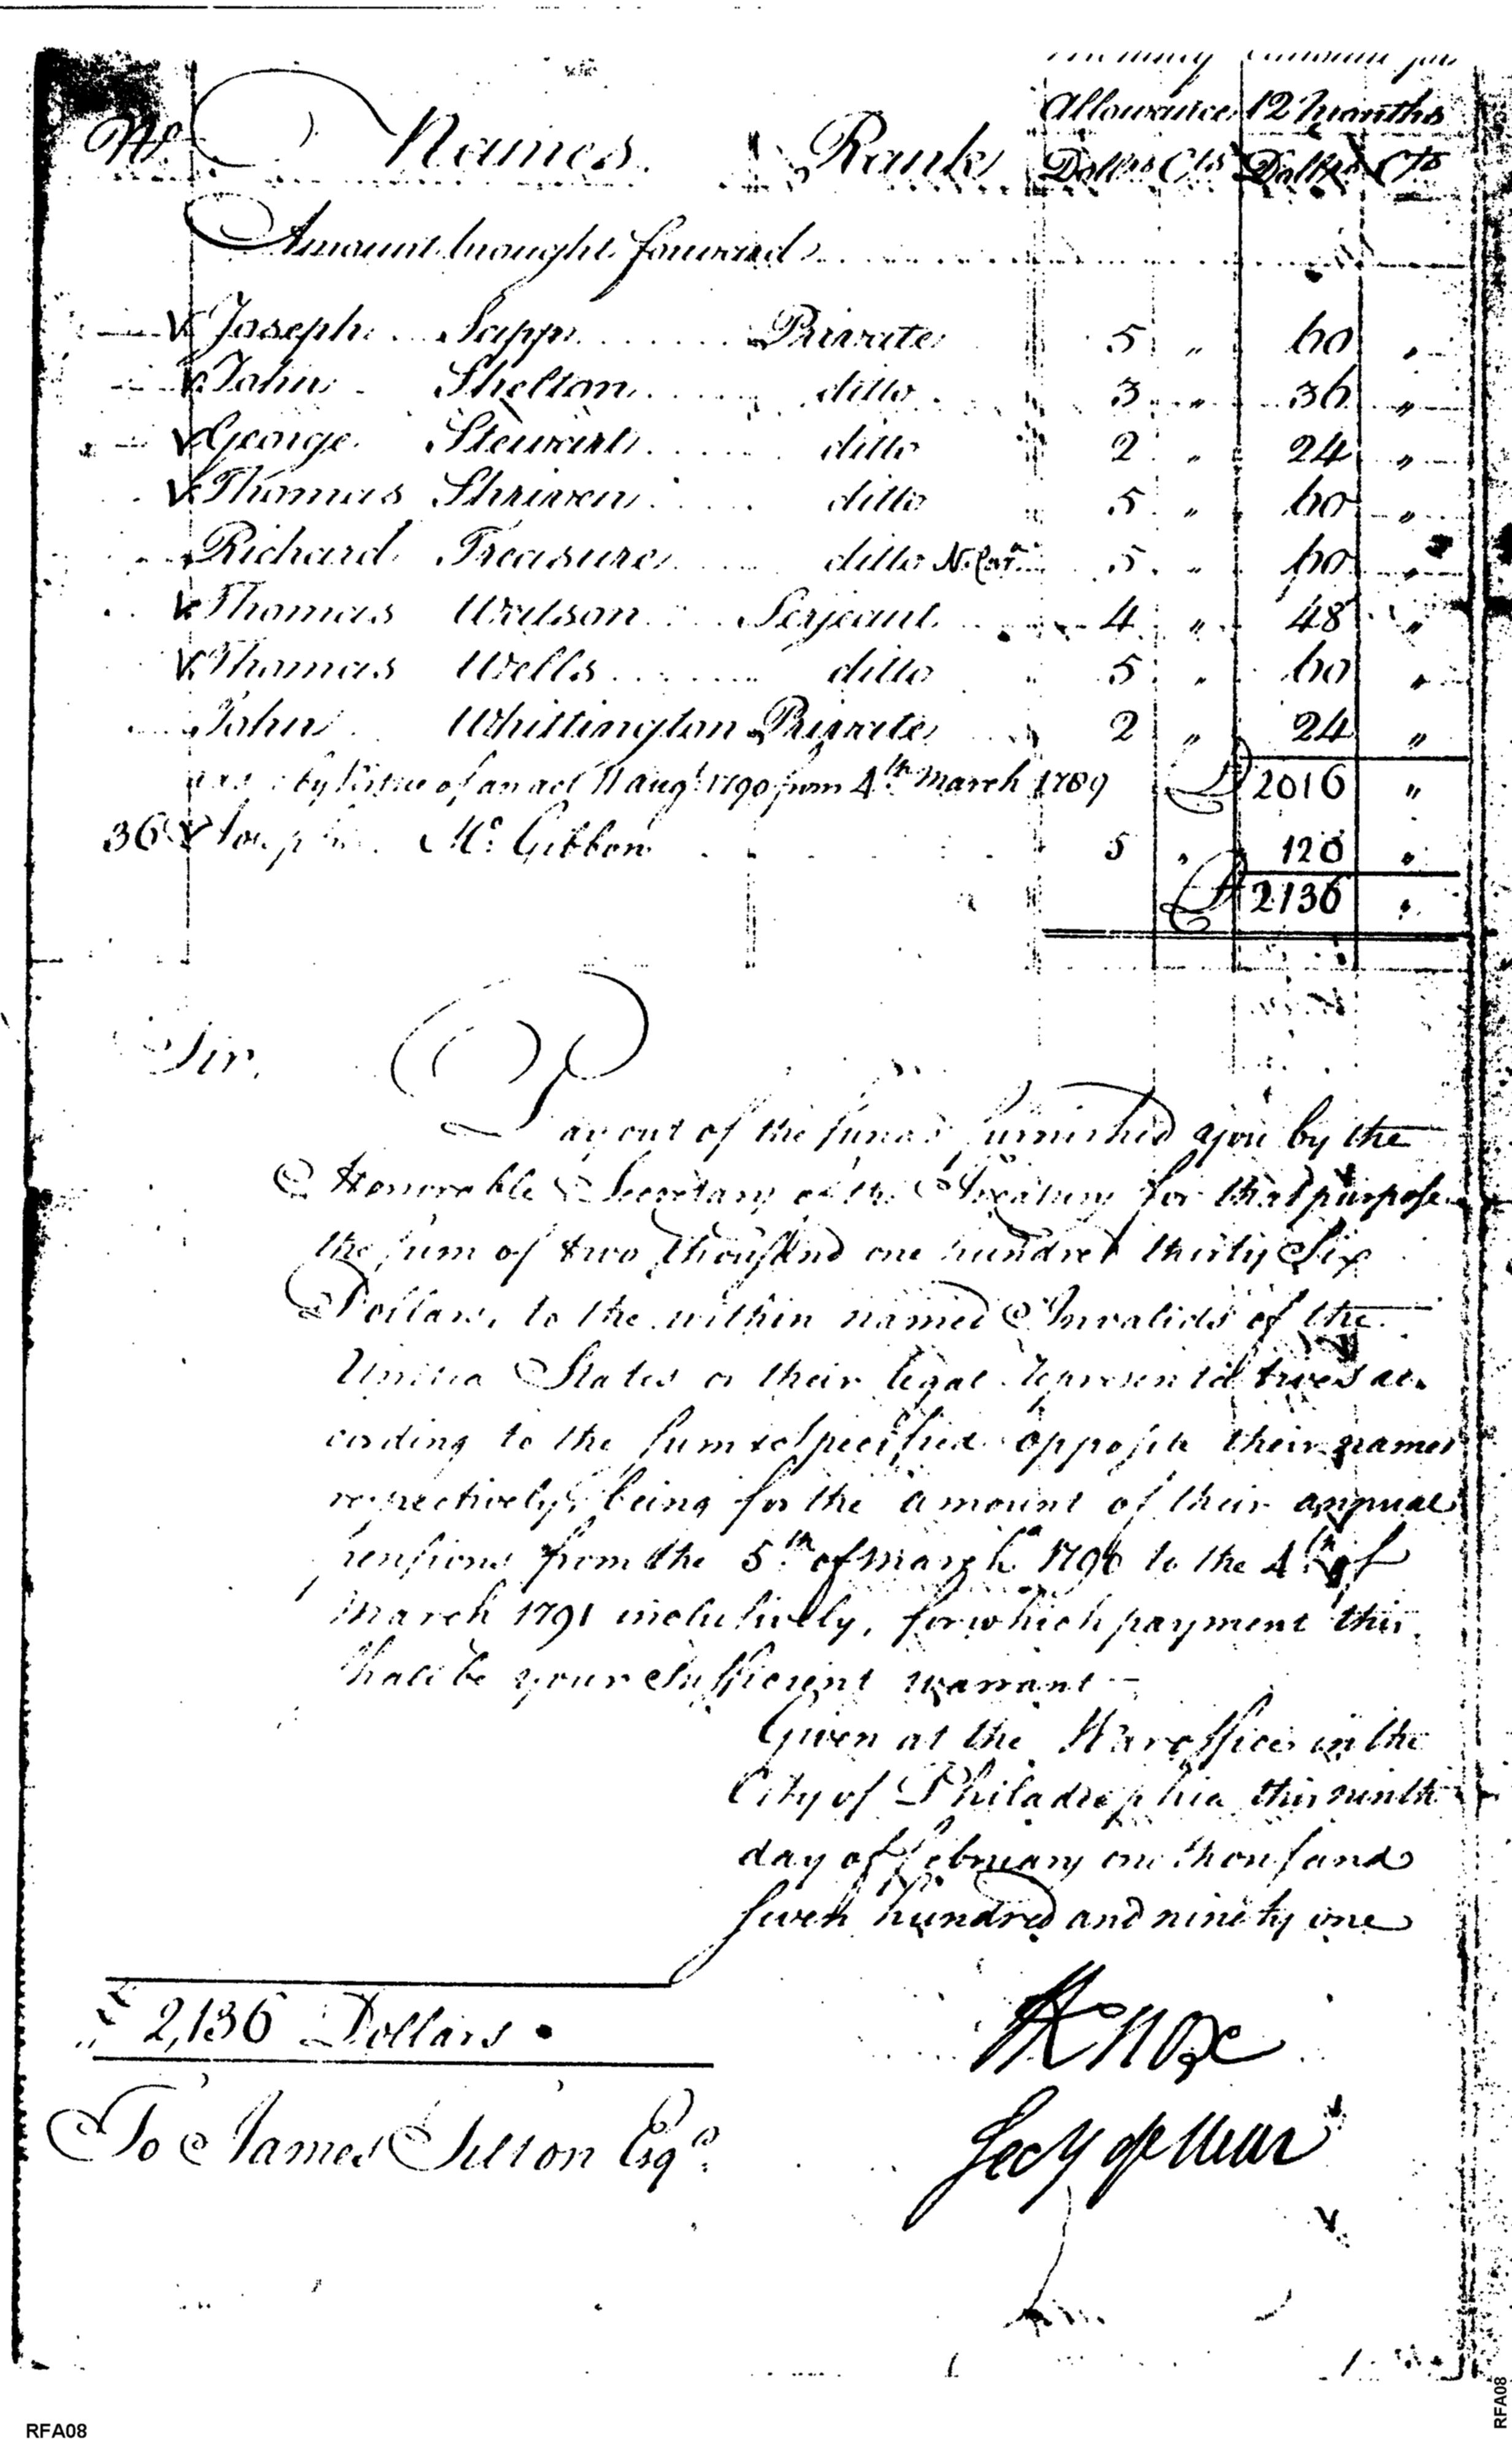 Allowance 12 months
No. Names. Rank Dollars Cts Dollars Cts
Amount brought forward
Joseph Sapp Private 5 " 60 "
John Shelton ditto 3 " 36 "
George Stewart ditto 2 " 24 "
Thomas Shriven ditto 5 " 60 "
Richard Treasure ditto N. Car. 5 " 60 "
Thomas Watson Serjeant 4 " 48 "
Thomas Wells ditto 5 " 60 "
John Whittington Private 2 " 24 "
by Virtue of an act 11 augt. 1790 from 4th March 1789 D 2016 "
36 Mc. Gibbon 5 " 120 "
D 2136 "
Sir.
Pay out of the funds furnished you by the
Honorable Secretary of the Treasury for that purpose
the sum of two thousand one hundred thirty Six
Dollars, to the within named Invalids of the
United States or their legal representatives ac-
cording to the sums specified opposite their names
respectively, being for the amount of their annual
pensions from the 5th of March 1790 to the 4th of
March 1791 inclusively, for which payment this
shall be your sufficient warrant —
Given at the War office in the
City of Philadelphia this ninth
day of February one thousand
seven hundred and ninety one
2,136 Dollars.
HKnox
Secy of War
To James Tilton Esqr.
RFA08
RFA08